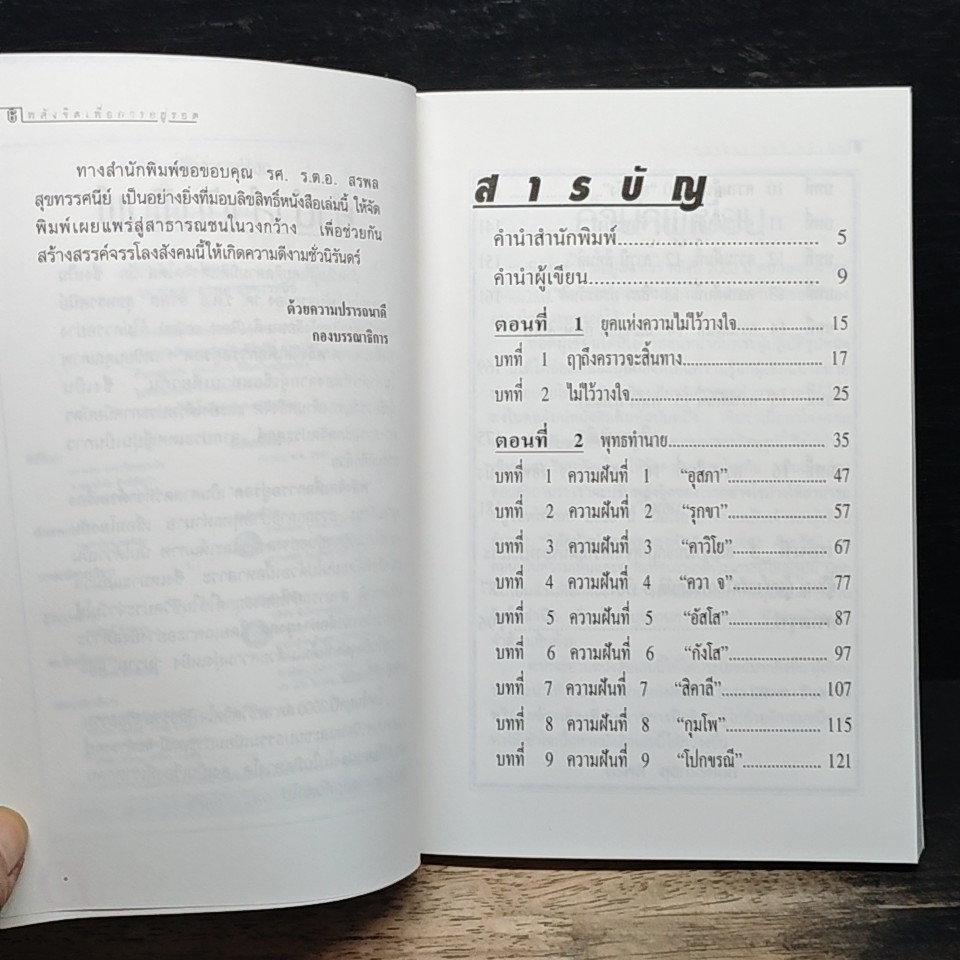 พลังจิตเพื่อการอยู่รอด
ทางสำนักพิมพ์ขอขอบคุณ รศ. ร.ต.อ. สรพล
สุขทรรศนีย์ เป็นอย่างยิ่งที่มอบลิขสิทธิ์หนังสือเล่มนี้ ให้จัด
พิมพ์เผยแพร่สู่สาธารณชนในวงกว้าง เพื่อช่วยกัน
สร้างสรรค์จรรโลงสังคมนี้ให้เกิดความดีงามชั่วนิรันดร์
ด้วยความปรารถนาดี
กองบรรณาธิการ
สารบัญ
คำนำสำนักพิมพ์........................................ 5
คำนำผู้เขียน............................................. 9
ตอนที่ 1 ยุคแห่งความไม่ไว้วางใจ.................... 15
บทที่ 1 ฤาถึงคราวจะสิ้นทาง............................ 17
บทที่ 2 ไม่ไว้วางใจ........................................ 25
ตอนที่ 2 พุทธทำนาย................................... 35
บทที่ 1 ความฝันที่ 1 “อุสภา”...................... 47
บทที่ 2 ความฝันที่ 2 “รุกขา”...................... 57
บทที่ 3 ความฝันที่ 3 “คาวิโย”..................... 67
บทที่ 4 ความฝันที่ 4 “ควา จ”..................... 77
บทที่ 5 ความฝันที่ 5 “อัสโส”...................... 87
บทที่ 6 ความฝันที่ 6 “กังโส”...................... 97
บทที่ 7 ความฝันที่ 7 “สิคาลี”..................... 107
บทที่ 8 ความฝันที่ 8 “กุมโพ”..................... 115
บทที่ 9 ความฝันที่ 9 “โปกขรณี”.................. 121